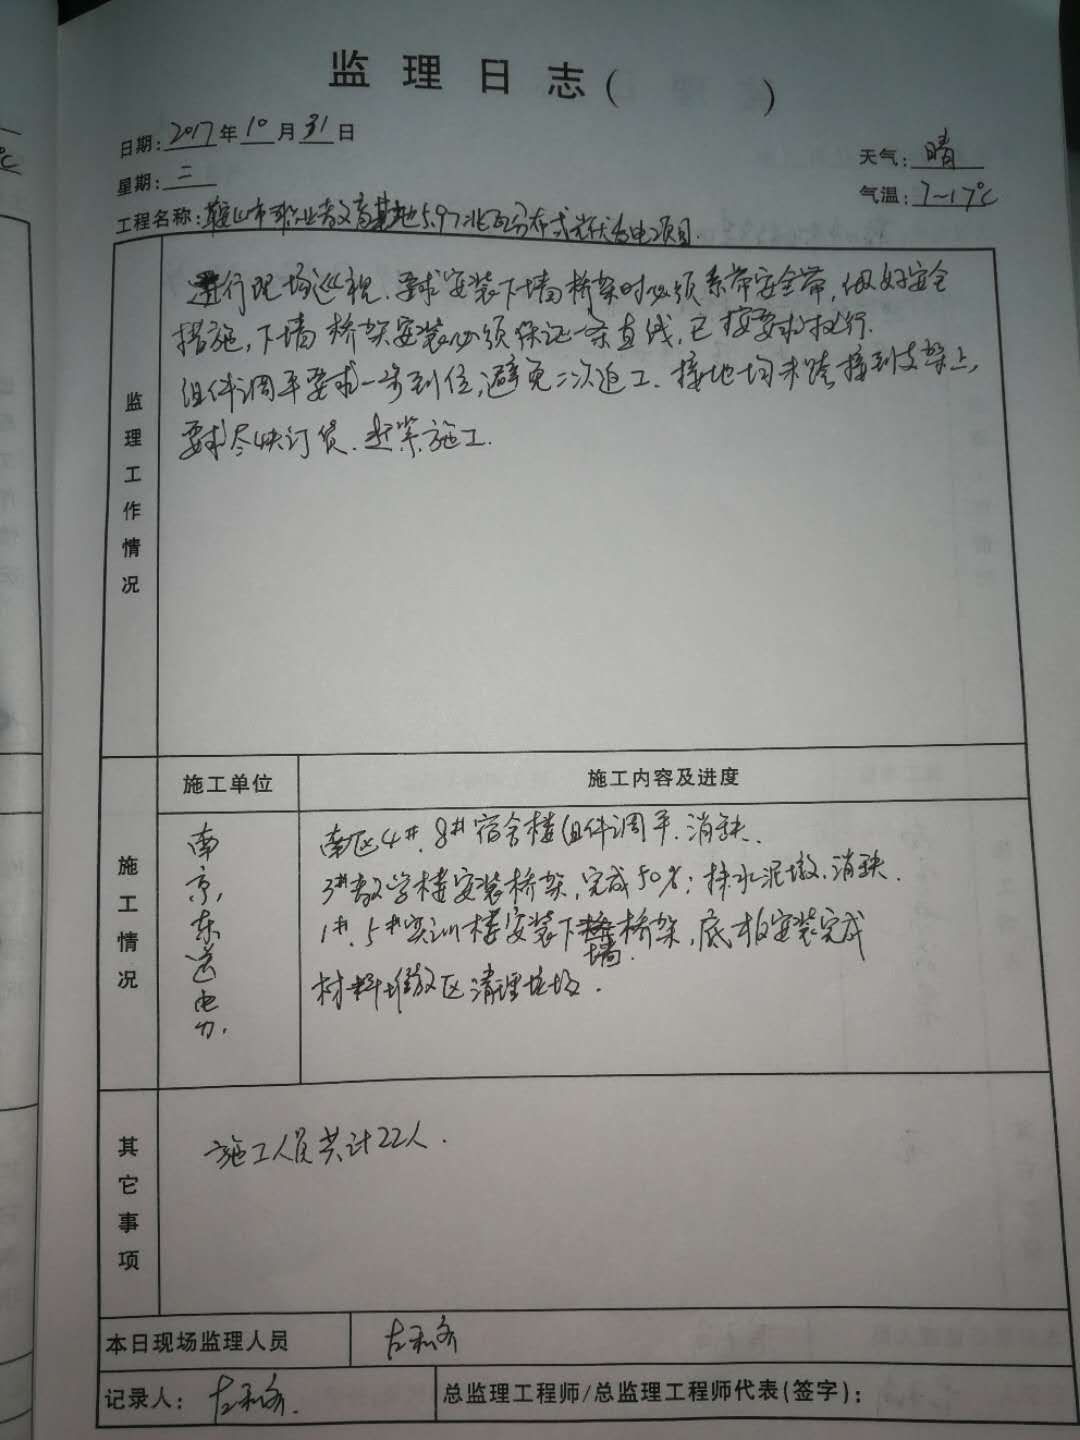 监理日志(          )
日期: 2017 年 10 月 31 日
天气: 晴
星期: 二
气温: 7~17℃
工程名称: 鞍山市职业教育基地5.97兆瓦分布式光伏发电项目.
监理工作情况
进行现场巡视.要求安装下墙桥架时必须系带安全带,做好安全
措施,下墙桥架安装必须保证一条直线,已按要求执行.
组件调平要求一步到位,避免二次返工.接地均未跨接到支架上,
要求尽快订货.赶紧施工.
施工情况
施工单位
施工内容及进度
南京东送电力.
南区4#.8#宿舍楼组件调平.消缺.
3#教学楼安装桥架,完成50%;抹水泥墩.消缺.
1#.5#实训楼安装下墙桥架,底板安装完成
材料堆放区清理垃圾.
其它事项
施工人员共计22人.
本日现场监理人员
记录人:
总监理工程师/总监理工程师代表(签字):